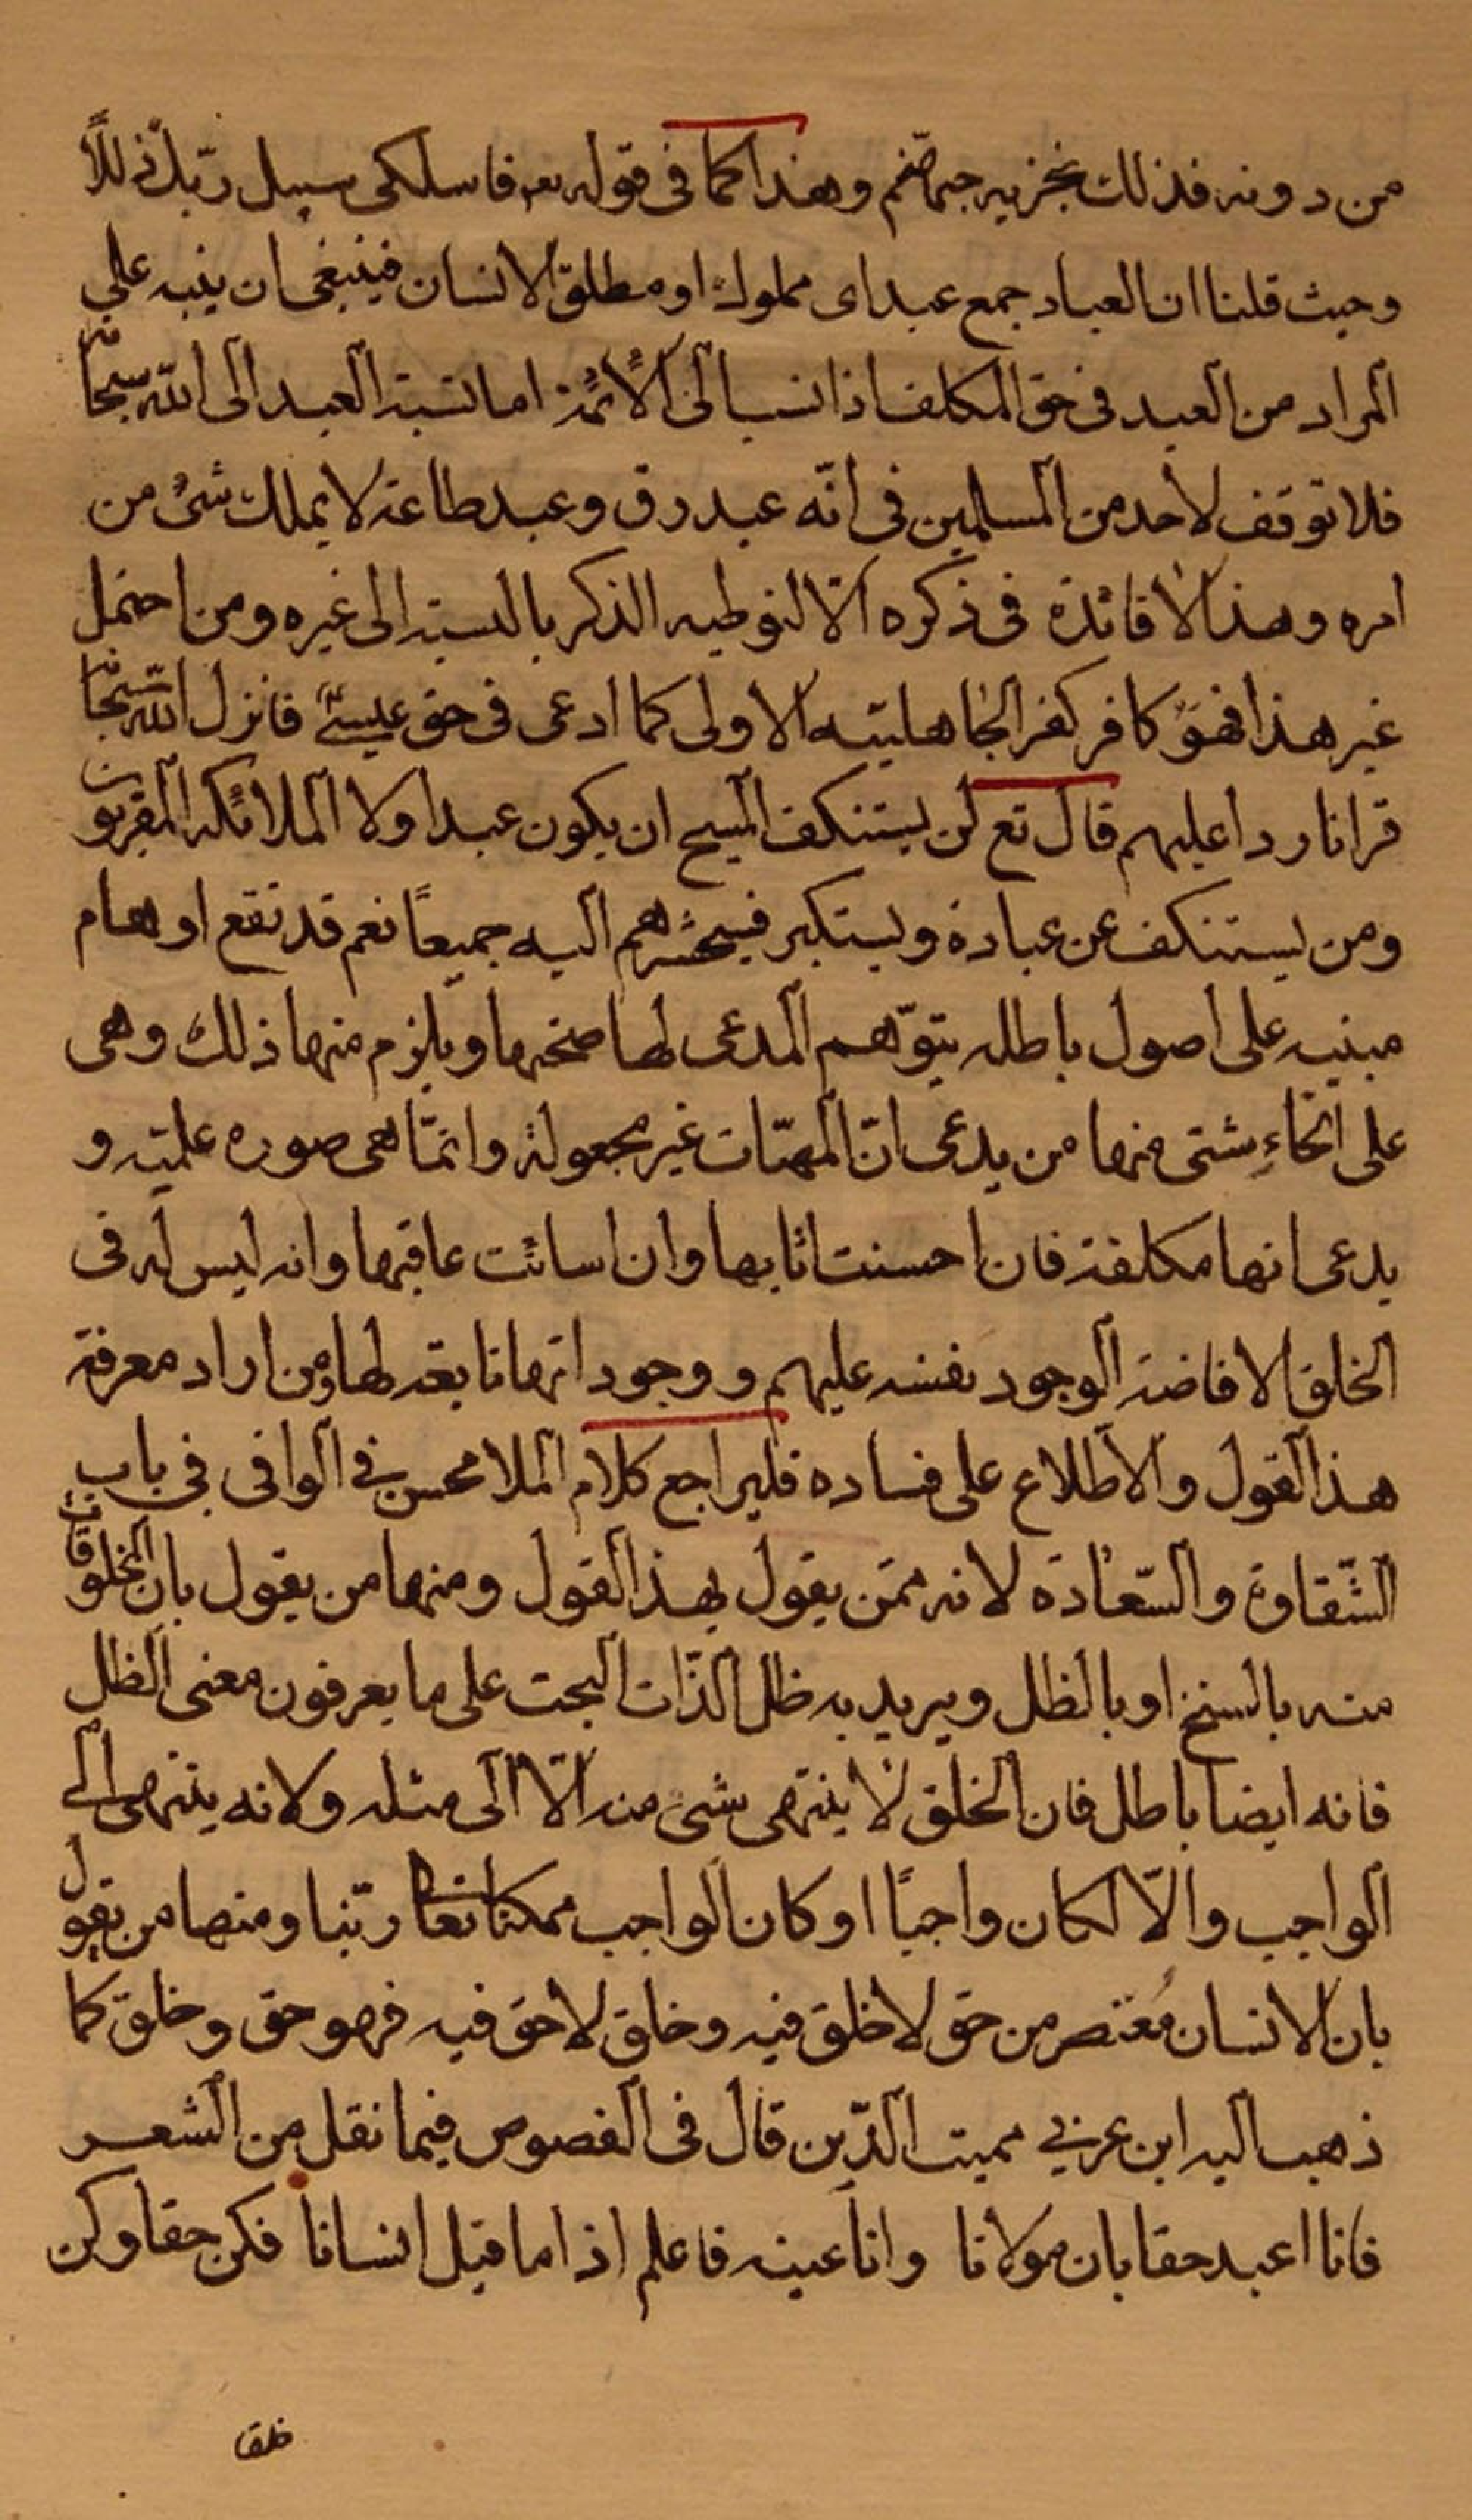 من دونه فذلك نجزيه جهنم وهذا كما فى قوله تعه فاسلكى سبيل ربّك ذللاً
وحيث قلنا ان العباد جمع عبد اى مملوك او مطلق الانسان فينبغى ان ينبه على
المراد من العبد فى حق المكلف اذا نسب الى الأئمّة اما نسبة العبد الى الله سبحانه
فلا توقف لأحد من المسلمين فى انّه عبد رق وعبد طاعة لا يملك شئ من
امره وهذا لا فائدة فى ذكره الّا لتوطيه الذكر بالنسبة الى غيره ومن احتمل
غير هذا فهو كافر كفر الجاهلية الاولى كما ادعى فى حق عيسىؑ فانزل الله سبحانه
قرانا ردا عليهم قال تع لن يستنكف المسيح ان يكون عبدا ولا الملائكة المقربون
ومن يستنكف عن عبادة ويستكبر فسيحشرهم اليه جميعًا نعم قد تقع اوهام
مبنيه على اصول باطله يتوّهم المدعى لها صحتها ويلزم منها ذلك وهى
على انحاءٍ شتى منها من يدعى انّ المهيّات غير مجعولة وانمّا هى صوره علميّه و
يدعى انها مكلفة فان احسنت اثابها وان اسائت عاقبها وانه ليس له فى
الخلق الا فاضة الوجود بنفسه عليهم ووجوداتها تابعة لها ومن اراد معرفة
هذا القول والأطلاع على فساده فليراجع كلام الملا محسن فى الوافى فى باب
الشّقاوة والسّعادة لانه ممّن يقول بهذا القول ومنها من يقول بان المخلوقات
منه بالسنخ او بالظل ويريد به ظل الذّات البحت على ما يعرفون معنى الظل
فانه ايضا باطل فان الخلق لا ينتهى شئ منه الّا الى مثله ولانه ينتهى الى
الواجب والّا لكان واجبًا او كان الواجب ممكنا تعا ربّنا ومنها من يقول
بان الانسان مُعتصر من حق لا خلق فيه وخلق لا حق فيه فهو حق وخلق كما
ذهب اليه ابن عربي مميت الدّين قال فى الفصوص فيما نقل من الشعر
فانا اعبد حقا بان مولانا وانا عينه فاعلم اذا ما قيل انسانا فكن حقا وكن
خلقا